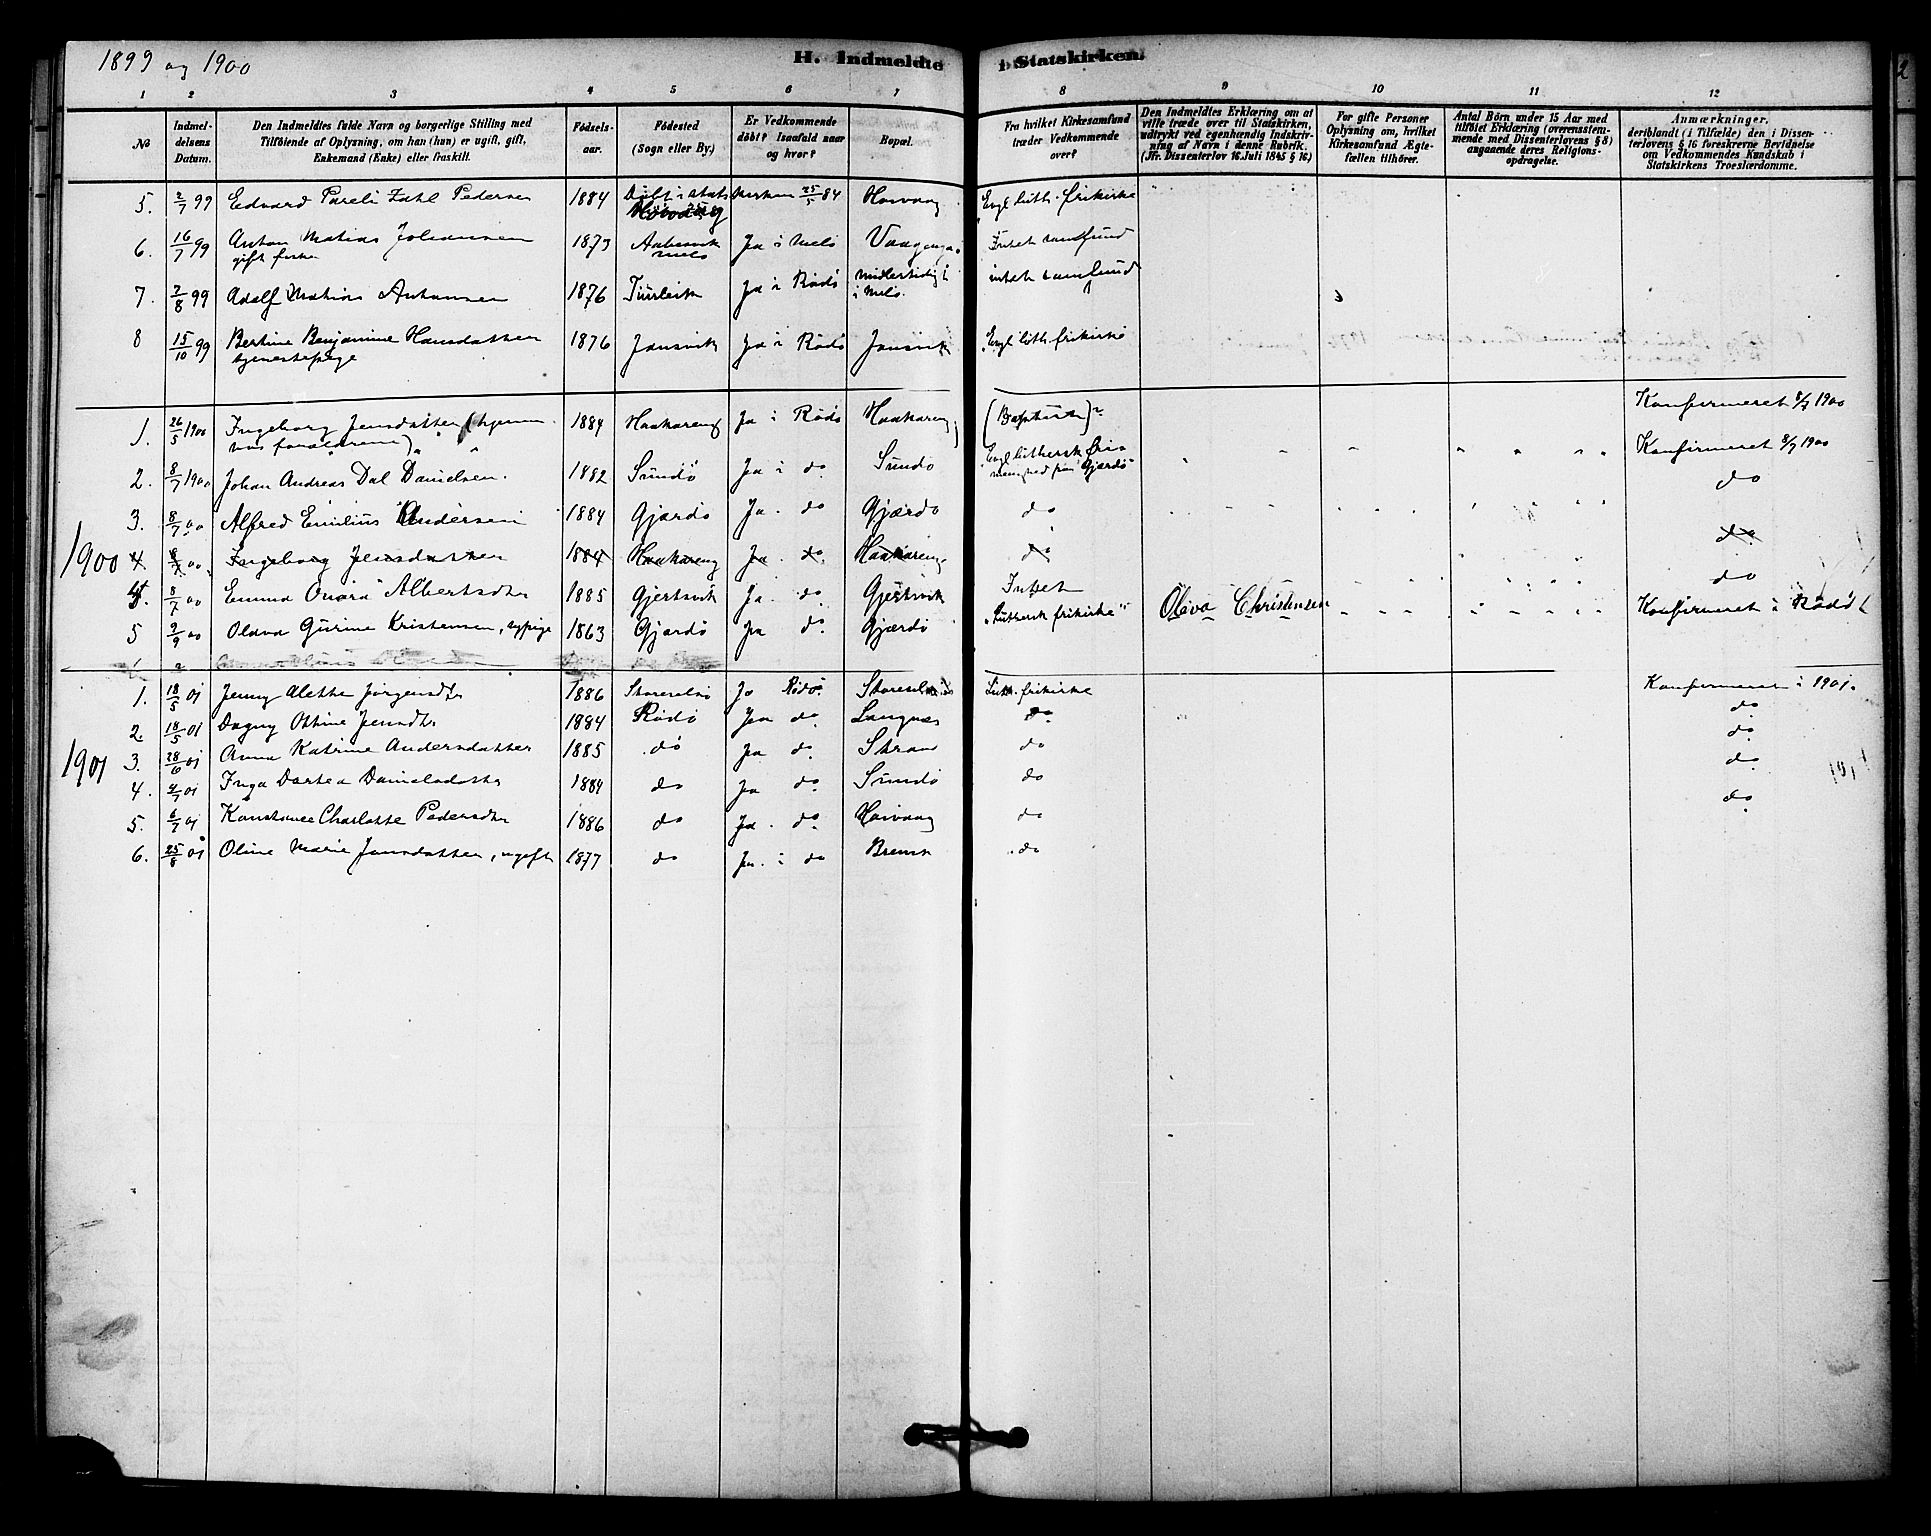 1899 og 1900
H. Indmeldte i Statskirken.
1 2 3 4 5 6 7 8 9 10 11 12
№
Indmel-
delsens
Datum.
Den Indmeldtes fulde Navn og borgerlige Stilling med
Tilføiende af Oplysning, om han (hun) er ugift, gift,
Enkemand (Enke) eller fraskilt.
Fødsels-
aar.
Fødested
(Sogn eller By.)
Er Vedkommende
døbt? Isaafald naar
og hvor?
Bopæl.
Fra hvilket Kirkesamfund
træder Vedkommende
over?
Den Indmeldtes Erklæring om at
ville træde over til Statskirken,
udtrykt ved egenhændig Indskriv-
ning af Navn i denne Rubrik.
(Jfr. Dissenterlov 16 Juli 1845 § 16)
For gifte Personer
Oplysning om, hvilket
Kirkesamfund Ægte-
fællen tilhører.
Antal Børn under 15 Aar med
tilføiet Erklæring (overensstem-
mende med Dissenterlovens § 8)
angaaende deres Religions-
opdragelse.
Anmærkninger,
deriblandt (i Tilfælde) den i Dissen-
terlovens § 16 foreskrevne Bevidnelse
om Vedkommendes Kundskab i
Statskirkens Troeslærdomme.
5. 2/7 99 Edvard Pareli Zahl Pedersen 1884 Døbt i stats kirken 25/5 84 Havaag Evgl. luth. frikirke
6. 16/7 99 Anton Matias Johansen 1873 Ja i Melø Intet samfund
gift
7. 7/8 99 Adolf Matias Antonsen 1876 Ja i Rødø midlertidig intet samfund
i Melø.
8 15/10 99 Bertine Benjamine Hansdatter 1876 Jansvik Ja i Rødø Jansvik Evgl. luth frikirke
tjenestepige
1. 26/5 1900 Ingeborg Jensdatter (hjemme 1884 Haakareng Ja i Rødø Haakareng (Baptist)? Konfirmeret 8/7 1900
hos forældrene)
2. 8/7 1900 Johan Andreas Dal Danielsen. 1882 Sundø Ja i do Sundø Evgl luthersk fri- Konfirmeret 8/7 1900
menighed fra Gjærdø
3. 8/7 00 Alfred Emilius Andersen 1884 Gjærdø Ja. do Gjærdø do do
1900
4 8/7 00 Ingeborg Jensdatter 1884 Haakareng Ja. do Haakareng. do do
4. 8/7 00 Emma Albertsdtr 1885 Gjertsvik Ja. do Gjertsvik Intet do
5 2/9 00 Olava Gurine Kristensen, tjpige 1863 Gjærdø Ja do Gjærdø "Luthersk frikirke" Oliva Christensen Konfirmeret i Rødø
1. 18/5 01 Jenny Alette Jørgensdtr 1886 Storeselsø Ja Rødø Storeselsø Luth. frikirke Konfirmeret i 1901.
2. 18/5 01 Dagny Ottine Jensdtr 1884 Rødø Ja do Langnes do do
1901
3. 28/6 01 Anna Katrine Andersdatter 1885 do Ja do Strand do do
4. 2/7 01 Inga Dortea Danielsdatter 1884 do Ja do Sundø do do
5. 6/7 01 Konstance Charlotte Pedersdtr 1886 do Ja. do Havaag do do
6. 25/8 01 Oline Marie Jansdatter, ugift 1877 do Ja. i do do